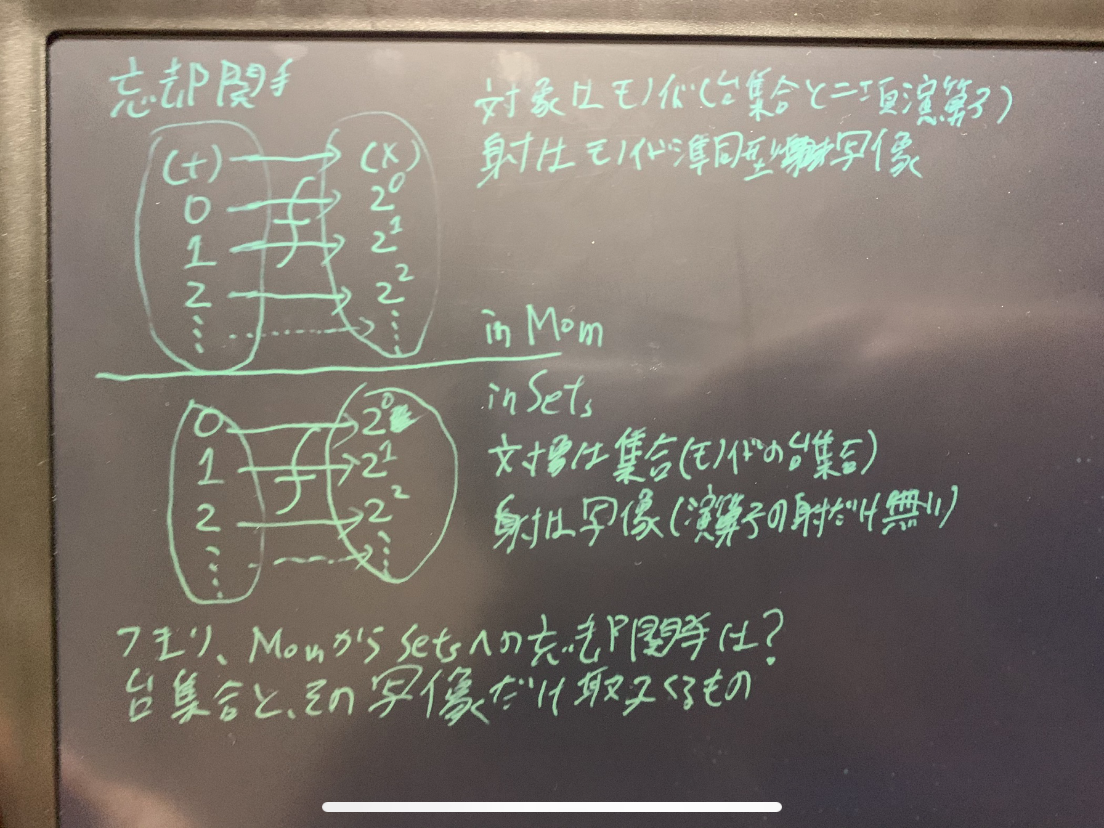 忘却関手
(+) (×)
0 2⁰
1 f 2¹
2 2²
対象はモノイド(台集合と二項演算子)
射はモノイド準同型写像
in Mom
in Sets
0 2⁰
1 f 2¹
2 2²
対象は集合(モノイドの台集合)
射は写像(演算子の射だけ無い)
つまり、MomからSetsへの忘却関手は?
台集合と、その写像だけ取ってくるもの